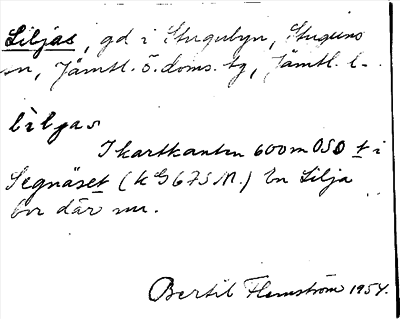 Liljas, gd i Stugubyn, Stuguns
sn, Jämtl. ö. doms. tg, Jämtl. l.
lìljas
I kartkanten 600 m OSO t i
Segnäset (k G 675 M.) En Lilja
bor där nu.
Bertil Flemström 1954.